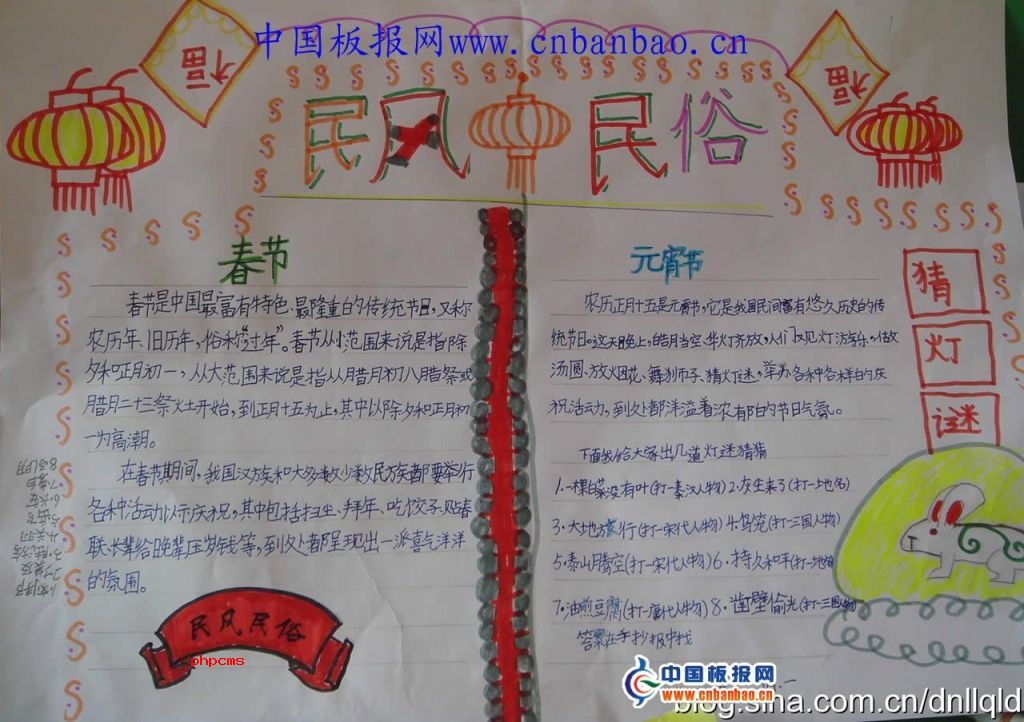 中国板报网www.cnbanbao.cn
福
福
民风民俗
春节
春节是中国最富有特色、最隆重的传统节日，又称
农历年、旧历年，俗称“过年”。春节从小范围来说是指除
夕和正月初一，从大范围来说是指从腊月初八腊祭或
腊月二十三祭灶开始，到正月十五为止，其中以除夕和正月初
一为高潮。
在春节期间，我国汉族和大多数少数民族都要举行
各种活动以示庆祝，其中包括扫尘、拜年、吃饺子、贴春
联、长辈给晚辈压岁钱等，到处都呈现出一派喜气洋洋
的氛围。
民风民俗
phpcms
元宵节
农历正月十五是元宵节，它是我国民间富有悠久历史的传
统节日。这天晚上，皓月当空，华灯齐放，人们
汤圆、放烟花、舞狮子、猜灯谜，举办各种各样的庆
祝活动，到处都洋溢着浓有的节日气氛。
下面我给大家出几道灯谜猜猜
1.一棵白菜没有叶(打一秦汉人物) 2.灰尘来了(打一地名)
3.大地旅行(打一宋代人物) 4.鸟笼(打一三国人物)
5.泰山腾空(打一宋代人物) 6.持久和平(打一地名)
7.油煎豆腐(打一唐代人物) 8.凿壁偷光(打一三国人物)
答案在手抄报中找
猜
灯
谜
中国板报网
www.cnbanbao.cn
blog.sina.com.cn/dnllqld